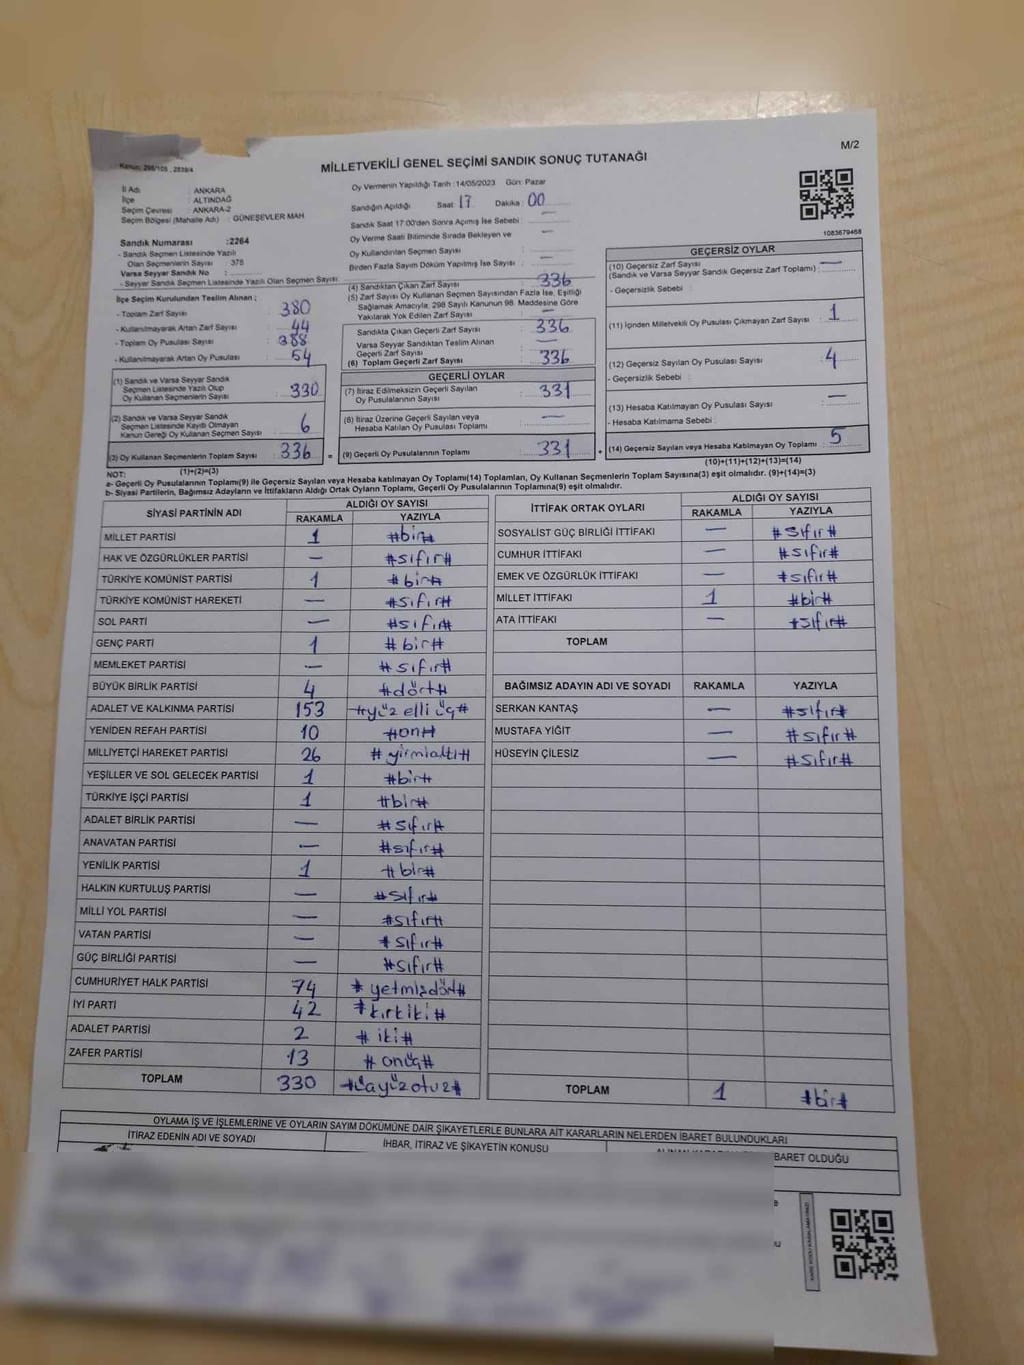 M/2
Kanun: 298/105 , 2839/4
MİLLETVEKİLİ GENEL SEÇİMİ SANDIK SONUÇ TUTANAĞI
İl Adı : ANKARA
İlçe : ALTINDAĞ
Seçim Çevresi : ANKARA-2
Seçim Bölgesi (Mahalle Adı) : GÜNEŞEVLER MAH.
Sandık Numarası :2264
- Sandık Seçmen Listesinde Yazılı
Olan Seçmenlerin Sayısı : 378
Varsa Seyyar Sandık No :
- Seyyar Sandık Seçmen Listesinde Yazılı Olan Seçmen Sayısı :
İlçe Seçim Kurulundan Teslim Alınan ;
- Toplam Zarf Sayısı : 380
- Kullanılmayarak Artan Zarf Sayısı : 44
- Toplam Oy Pusulası : 388
- Kullanılmayarak Artan Oy Pusulası : 54
(1) Sandık ve Varsa Seyyar Sandık
Seçmen Listesinde Yazılı Olup
Oy Kullanan Seçmenlerin Sayısı : 330
(2) Sandık ve Varsa Seyyar Sandık
Seçmen Listesinde Kayıtlı Olmayan
Kanun Gereği Oy Kullanan Seçmen Sayısı : 6
(3) Oy Kullanan Seçmenlerin Toplam Sayısı : 336
(1)+(2)=(3)
Oy Vermenin Yapıldığı Tarih :14/05/2023 Gün: Pazar
Sandığın Açıldığı Saat : 17 Dakika : 00
Sandık Saat 17:00'den Sonra Açımış İse Sebebi : —
Oy Verme Saati Bitiminde Sırada Bekleyen ve
Oy Kullandırılan Seçmen Sayısı : —
Birden Fazla Sayım Döküm Yapılmış İse Sayısı : —
(4) Sandıktan Çıkan Zarf Sayısı : 336
(5) Zarf Sayısı Oy Kullanan Seçmen Sayısından Fazla İse, Eşitliği
Sağlamak Amacıyla, 298 Sayılı Kanunun 98. Maddesine Göre
Yakılarak Yok Edilen Zarf Sayısı : —
Sandıkta Çıkan Geçerli Zarf Sayısı : 336
Varsa Seyyar Sandıktan Teslim Alınan
Geçerli Zarf Sayısı : —
(6) Toplam Geçerli Zarf Sayısı : 336
GEÇERLİ OYLAR
(7) İtiraz Edilmeksizin Geçerli Sayılan
Oy Pusulalarının Sayısı : 331
(8) İtiraz Üzerine Geçerli Sayılan veya
Hesaba Katılan Oy Pusulası Toplamı : —
= (9) Geçerli Oy Pusulalarının Toplamı : 331 +
1083679468
GEÇERSİZ OYLAR
(10) Geçersiz Zarf Sayısı : —
(Sandık ve Varsa Seyyar Sandık Geçersiz Zarf Toplamı)
- Geçersizlik Sebebi :
(11) İçinden Milletvekili Oy Pusulası Çıkmayan Zarf Sayısı : 1
(12) Geçersiz Sayılan Oy Pusulası Sayısı : 4
- Geçersizlik Sebebi :
(13) Hesaba Katılmayan Oy Pusulası Sayısı : —
- Hesaba Katılmama Sebebi :
(14) Geçersiz Sayılan veya Hesaba Katılmayan Oy Toplamı : 5
(10)+(11)+(12)+(13)=(14)
NOT:
a- Geçerli Oy Pusulalarının Toplamı(9) ile Geçersiz Sayılan veya Hesaba katılmayan Oy Toplamı(14) Toplamları, Oy Kullanan Seçmenlerin Toplam Sayısına(3) eşit olmalıdır. (9)+(14)=(3)
b- Siyasi Partilerin, Bağımsız Adayların ve İttifakların Aldığı Ortak Oyların Toplamı, Geçerli Oy Pusulalarının Toplamına(9) eşit olmalıdır.
SİYASİ PARTİNİN ADI ALDIĞI OY SAYISI
RAKAMLA YAZIYLA
MİLLET PARTİSİ 1 #bir#
HAK VE ÖZGÜRLÜKLER PARTİSİ — #sıfır#
TÜRKİYE KOMÜNİST PARTİSİ 1 #bir#
TÜRKİYE KOMÜNİST HAREKETİ — #sıfır#
SOL PARTİ — #sıfır#
GENÇ PARTİ 1 #bir#
MEMLEKET PARTİSİ — #sıfır#
BÜYÜK BİRLİK PARTİSİ 4 #dört#
ADALET VE KALKINMA PARTİSİ 153 #yüz elli üç#
YENİDEN REFAH PARTİSİ 10 #on#
MİLLİYETÇİ HAREKET PARTİSİ 26 #yirmialtı#
YEŞİLLER VE SOL GELECEK PARTİSİ 1 #bir#
TÜRKİYE İŞÇİ PARTİSİ 1 #bir#
ADALET BİRLİK PARTİSİ — #sıfır#
ANAVATAN PARTİSİ — #sıfır#
YENİLİK PARTİSİ 1 #bir#
HALKIN KURTULUŞ PARTİSİ — #sıfır#
MİLLİ YOL PARTİSİ — #sıfır#
VATAN PARTİSİ — #sıfır#
GÜÇ BİRLİĞİ PARTİSİ — #sıfır#
CUMHURİYET HALK PARTİSİ 74 #yetmişdört#
İYİ PARTİ 42 #kırkiki#
ADALET PARTİSİ 2 #iki#
ZAFER PARTİSİ 13 #onüç#
TOPLAM 330 #üçyüzotuz#
İTTİFAK ORTAK OYLARI ALDIĞI OY SAYISI
RAKAMLA YAZIYLA
SOSYALİST GÜÇ BİRLİĞİ İTTİFAKI — #sıfır#
CUMHUR İTTİFAKI — #sıfır#
EMEK VE ÖZGÜRLÜK İTTİFAKI — #sıfır#
MİLLET İTTİFAKI 1 #bir#
ATA İTTİFAKI — #sıfır#
TOPLAM
BAĞIMSIZ ADAYIN ADI VE SOYADI RAKAMLA YAZIYLA
SERKAN KANTAŞ — #sıfır#
MUSTAFA YİĞİT — #sıfır#
HÜSEYİN ÇİLESİZ — #sıfır#
TOPLAM 1 #bir#
OYLAMA İŞ VE İŞLEMLERİNE VE OYLARIN SAYIM DÖKÜMÜNE DAİR ŞİKAYETLERLE BUNLARA AİT KARARLARIN NELERDEN İBARET BULUNDUKLARI
İTİRAZ EDENİN ADI VE SOYADI İHBAR, İTİRAZ VE ŞİKAYETİN KONUSU BARET OLDUĞU